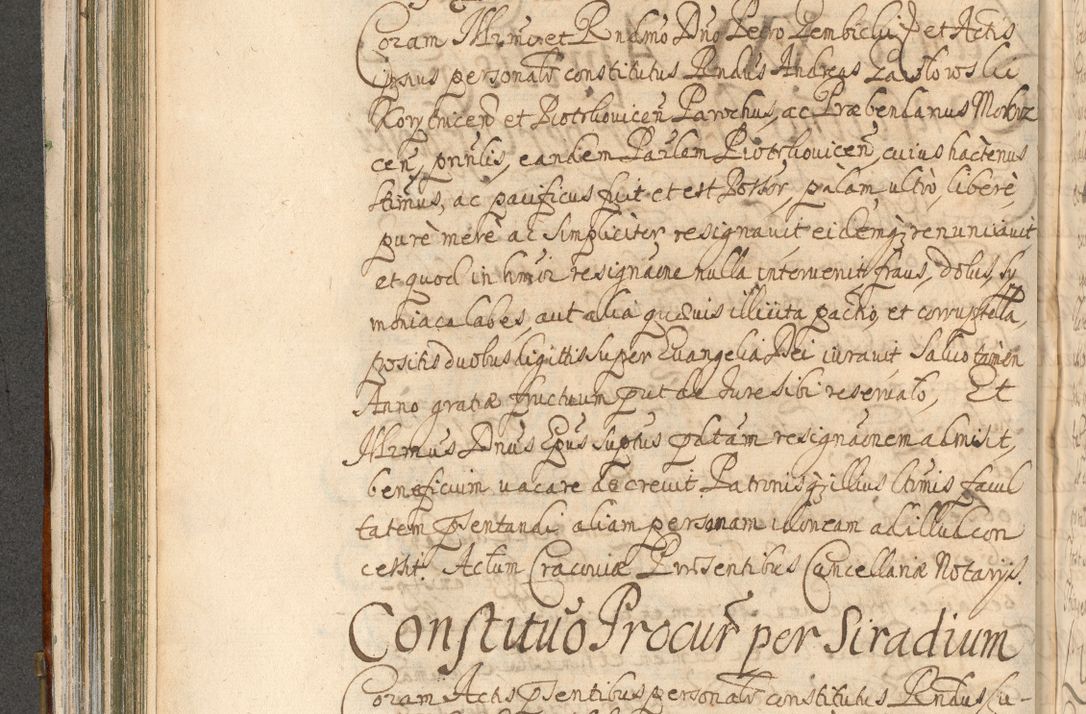 Coram Illrmo et Rndmo Dno Petro Gembicki et Actis
ipsius personalr constitutus Rndus Andreas Pawlowski
et Piotrkovicen Parochus, ac Præbendarius
cen, pnnlis, eandem Parlem Piotrkovicen, cuius hactenus
ltimus, ac pacificus fuit et est Possor, palam, ultrò, liberè,
purè merè ac simpliciter resignavit eidemq; renunciavit
et quod in hmoi resignaone nulla intervenit fraus, dolus, sy
moniaca labes, aut alia quævis illicita pactio, et corruptella,
positis duobus digittis super Evangelia Dei iuravit Salvo tamen
Anno gratiæ fructuum put de Iure sibi reservato, Et
Illrmus Dnus Epus suptus pdtam resignaonem admisit,
beneficium vacare decrevit Patronisq; illius ltimis facul
tatem psentandi aliam personam idoneam ad illud con
cessit. Actum Cracoviæ Præsentibus Cancellariæ Notarijs.
Constituo Procur per Siradium
Coram Actis psentibus personalr constitutus Rndus